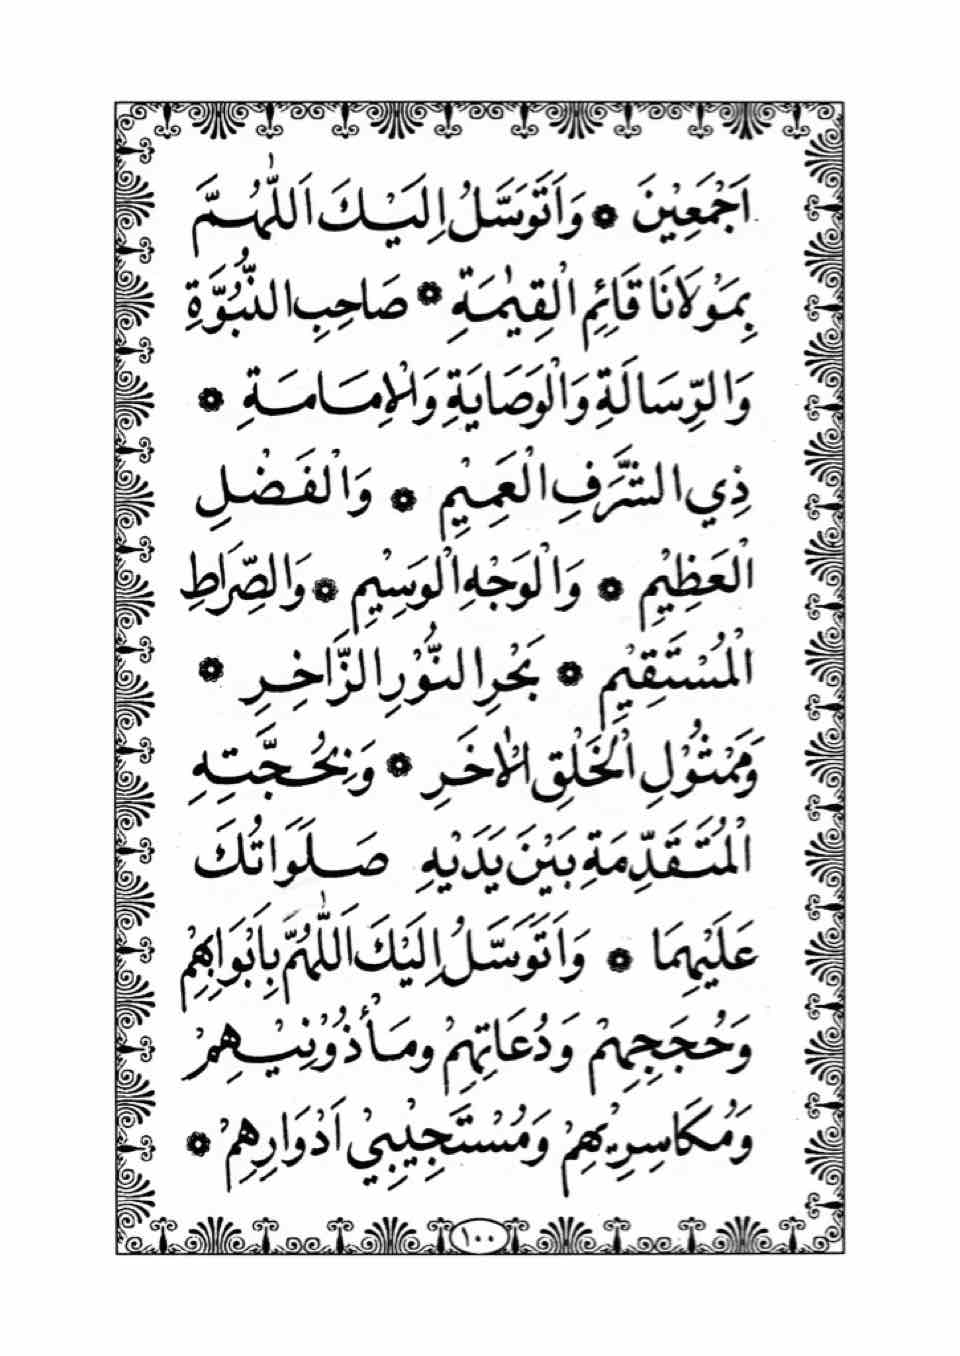 اَجْمَعِيْنَ ❁ وَاَتَوَسَّلُ اِلَيْكَ اَللّٰهُمَّ
بِمَوْلَانَا قَائِمِ الْقِيٰمَةِ ❁ صَاحِبِ النُّبُوَّةِ
وَالرِّسَالَةِ وَالْوَصَايَةِ وَالْاِمَامَةِ ❁
ذِي الشَّرَفِ الْعَمِيْمِ ❁ وَالْفَضْلِ
الْعَظِيْمِ ❁ وَالْوَجْهِ الْوَسِيْمِ ❁ وَالصِّرَاطِ
الْمُسْتَقِيْمِ ❁ بَحْرِ النُّوْرِ الزَّاخِرِ ❁
وَمَمْثُوْلِ الْخَلْقِ الْاٰخَرِ ❁ وَبِحُجَّتِهِ
الْمُتَقَدِّمَةِ بَيْنَ يَدَيْهِ صَلَوَاتُكَ
عَلَيْهِمَا ❁ وَاَتَوَسَّلُ اِلَيْكَ اَللّٰهُمَّ بِاَبْوَابِهِمْ
وَحُجَجِهِمْ وَدُعَاتِهِمْ وَمَأْذُوْنِيْهِمْ
وَمُكَاسِرِيْهِمْ وَمُسْتَجِيْبِيْ اَدْوَارِهِمْ ❁
١٠٠